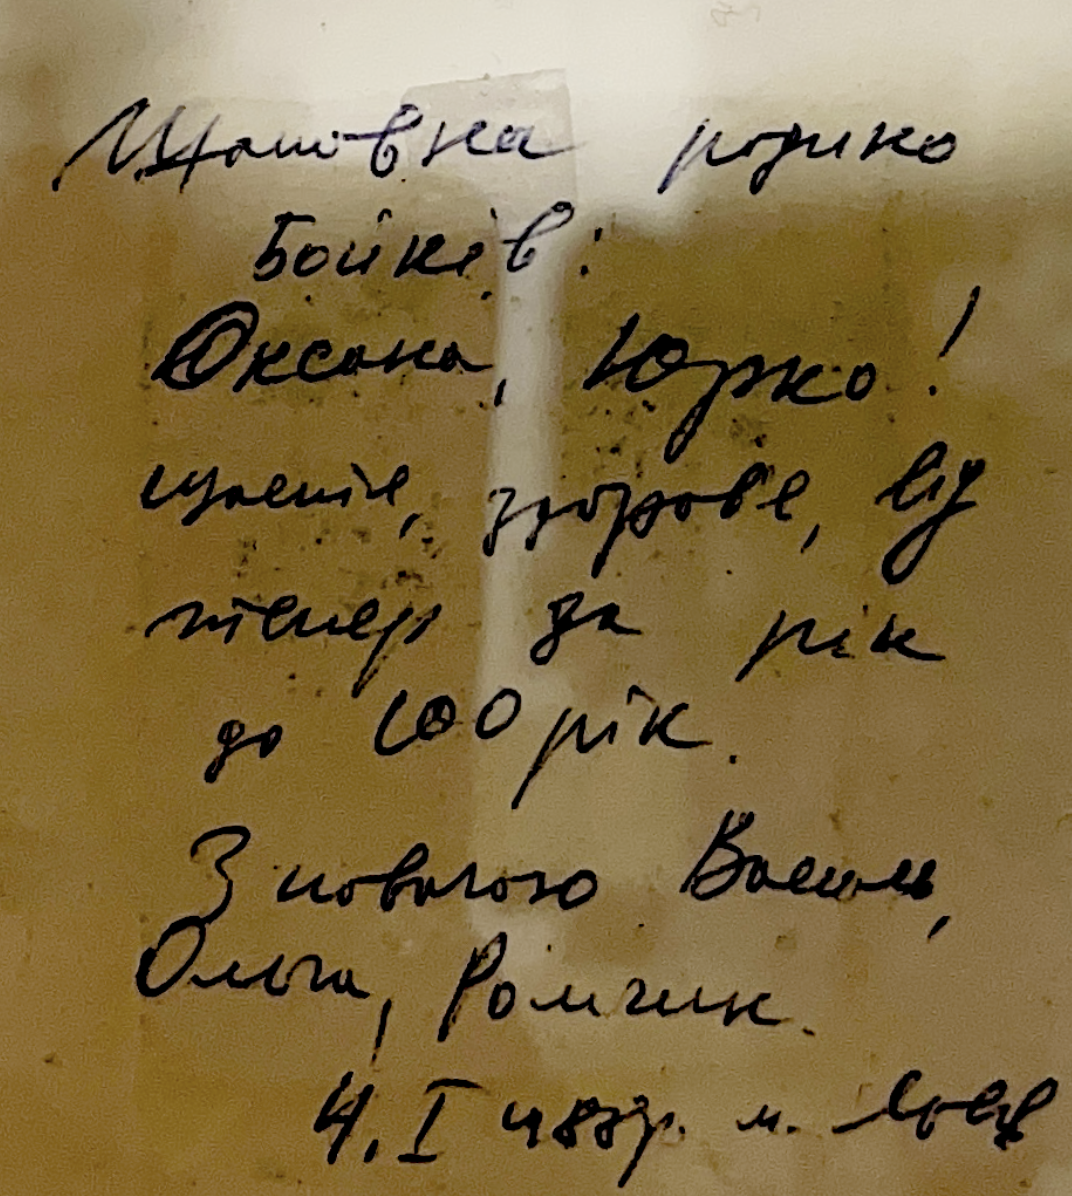 Шановна родино
Бойків:
Оксана, Юрко!
щастя, здоров'є, від
тепер за рік
до 100 рік.
З повагою Василь,
Ольга, Ромчик.
4. I р. м. Львів